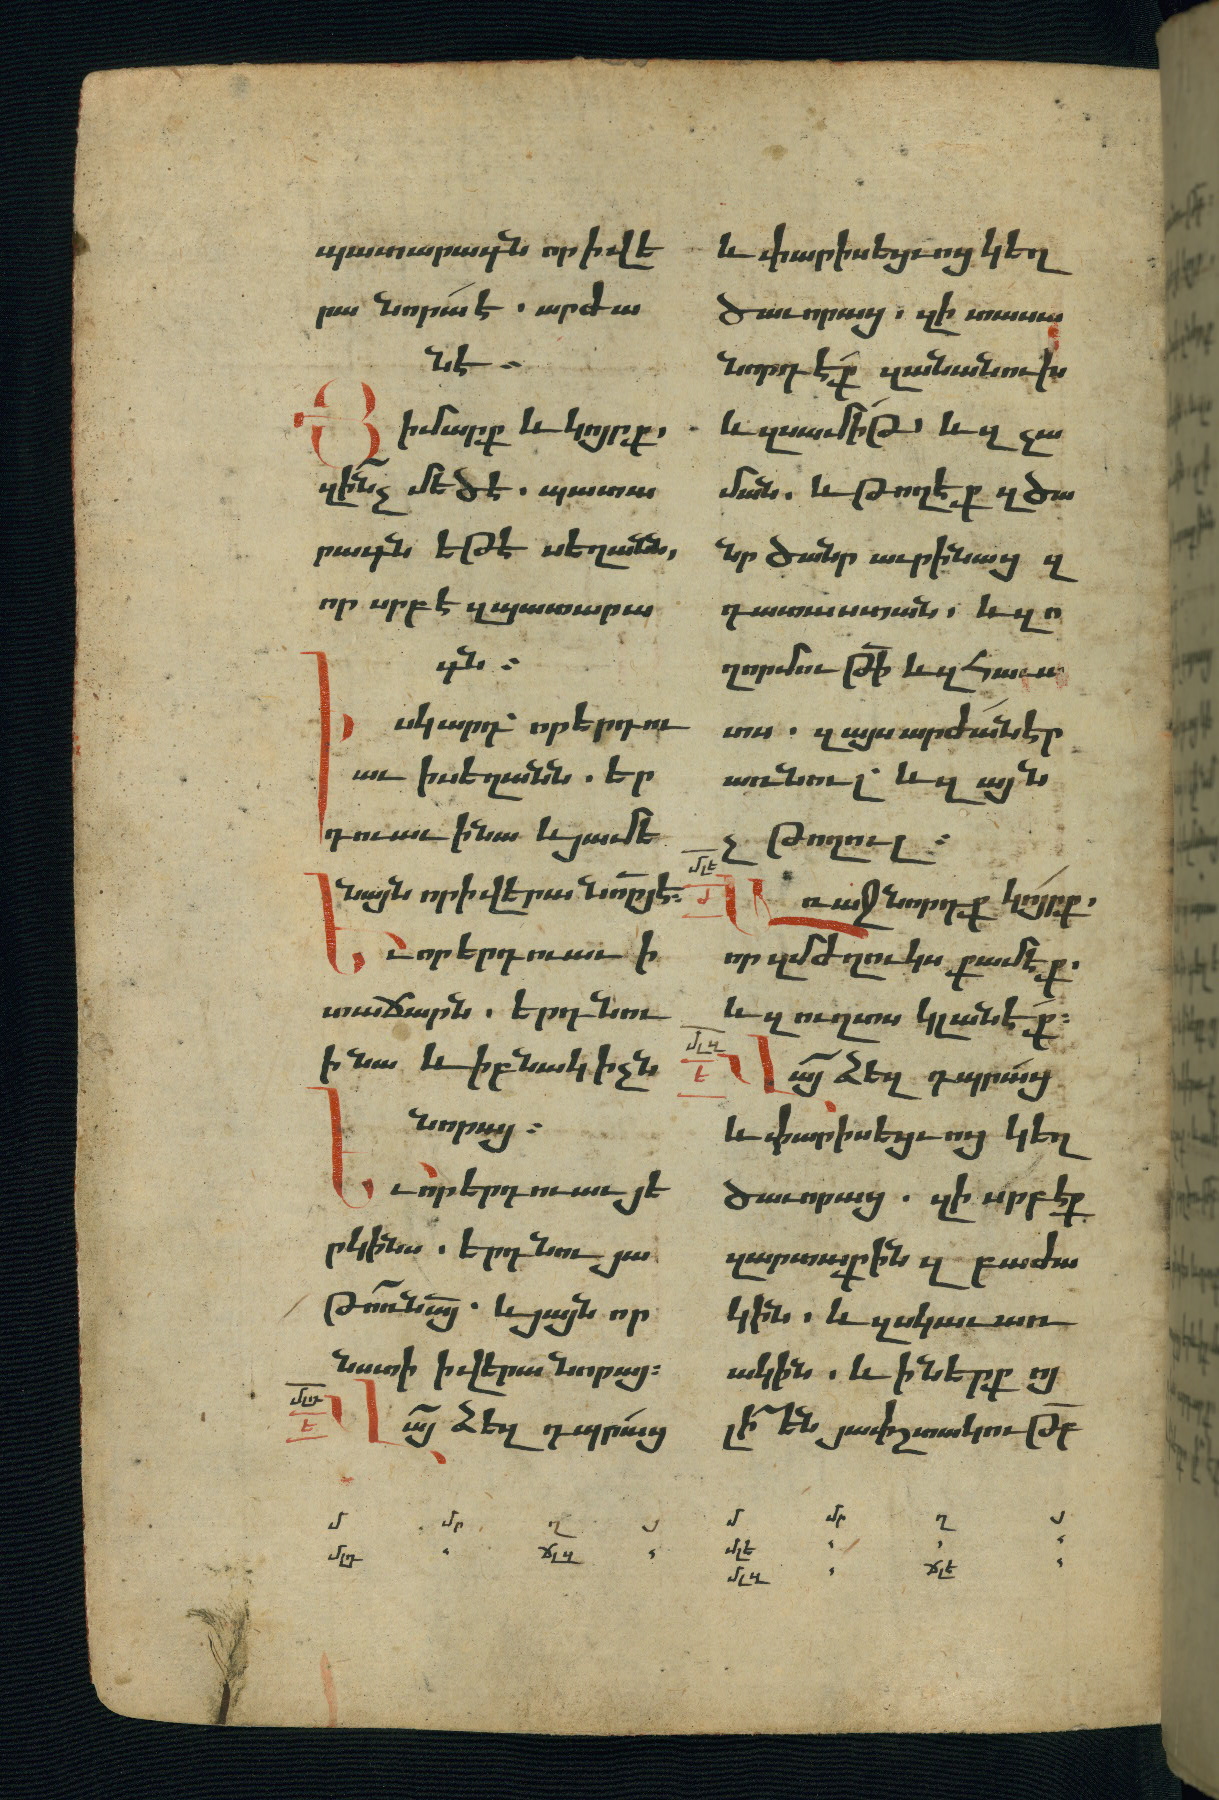 պատարագն որ իվե
րա նորա է. արժա
նէ։
Յիմարք և կոյրք,
զի՞նչ մեծ է. պատա
րագն եթէ սեղանն,
որ սրբէ զպատարա
գն։
Իսկ արդ՝ որ երդու
աւ իսեղանն. եր
դուաւ ինա և յամե
նայն որ իվերա նորա իցէ։
Եւ որ երդուաւ ի
տաճարն. երդնու
ի նա և ի բնակիչն
նորա։
Եւ որ երդուաւ յե
րկինս. երդնու յա
թոռն այ. և յայն որ
նստի իվերա նորա։
մլդ
է
Վայ ձեզ դպրաց
և փարիսեցւոց կեղ
ծաւորաց. զի տասա
նորդէք զանանուխ
և զսամիթ. և զ չա
ման. և թողէք զծա
նր ծանր աւրինաց զ
դատաստան. և զո
ղորմութի և զհաւա
տս. զայս արժան էր
առնուլ՝ և զ այն
չ թողուլ։
մլե
ժ
Առաջնորդք կոյրք,
որ զմժղուկս քամէք.
և զ ուղտս կլանէք։
մլզ
է
Վայ ձեզ դպրաց
և փարիսեցւոց կեղ
ծաւորաց. զի սրբէք
զարտաքին զ բաժա
կին. և զսկաւառ
ակին. և ի ներքոյ
լի են յափշտակութբ
մ մր ղ յ
մլդ , ճլզ ,
մ մր ղ յ
մլե , , ,
մլզ , ճլէ ,